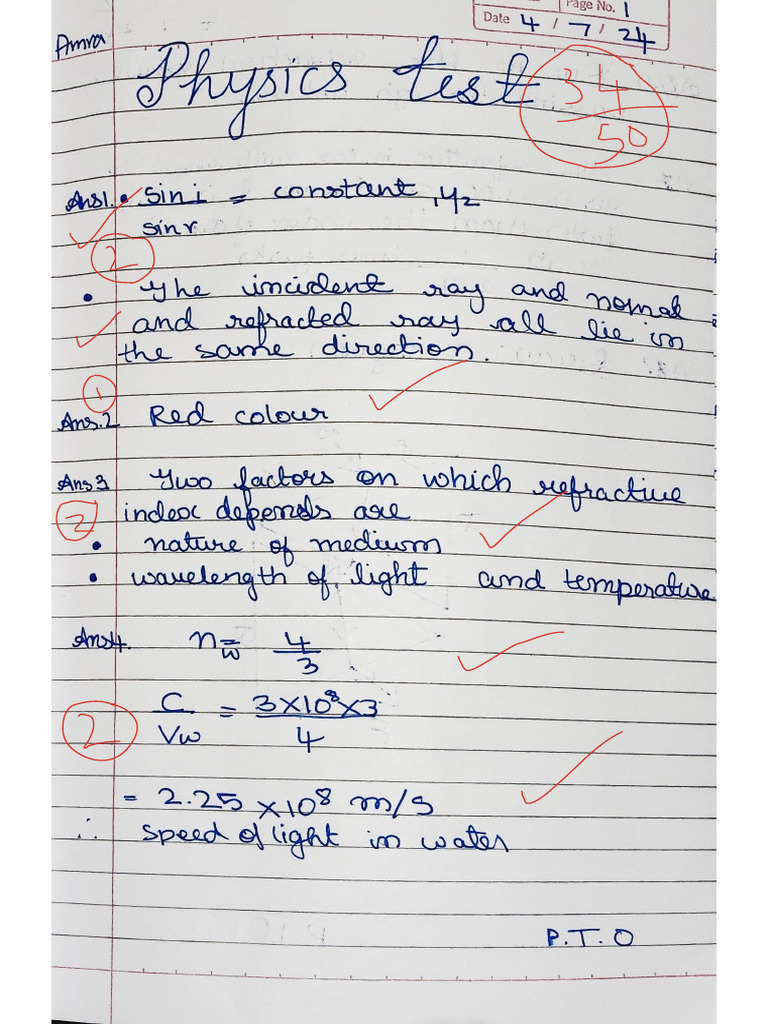 Page No. 1
Date 4 / 7 / 24
Amra
Physics test
34
50
Ans1. • sin i = constant, 
sin r
2
• The incident ray and nomal
and refracted ray all lie in
the same direction.
1
Ans.2 Red colour
Ans3 Two factors on which refractive
2 index depends are
• nature of medium
• wavelength of light and temperature
Ans4. n w = 4
3
C = 3×10⁸×3
Vw 4
2
= 2.25 ×10⁸ m/s
∴ speed of light in water
P.T.O